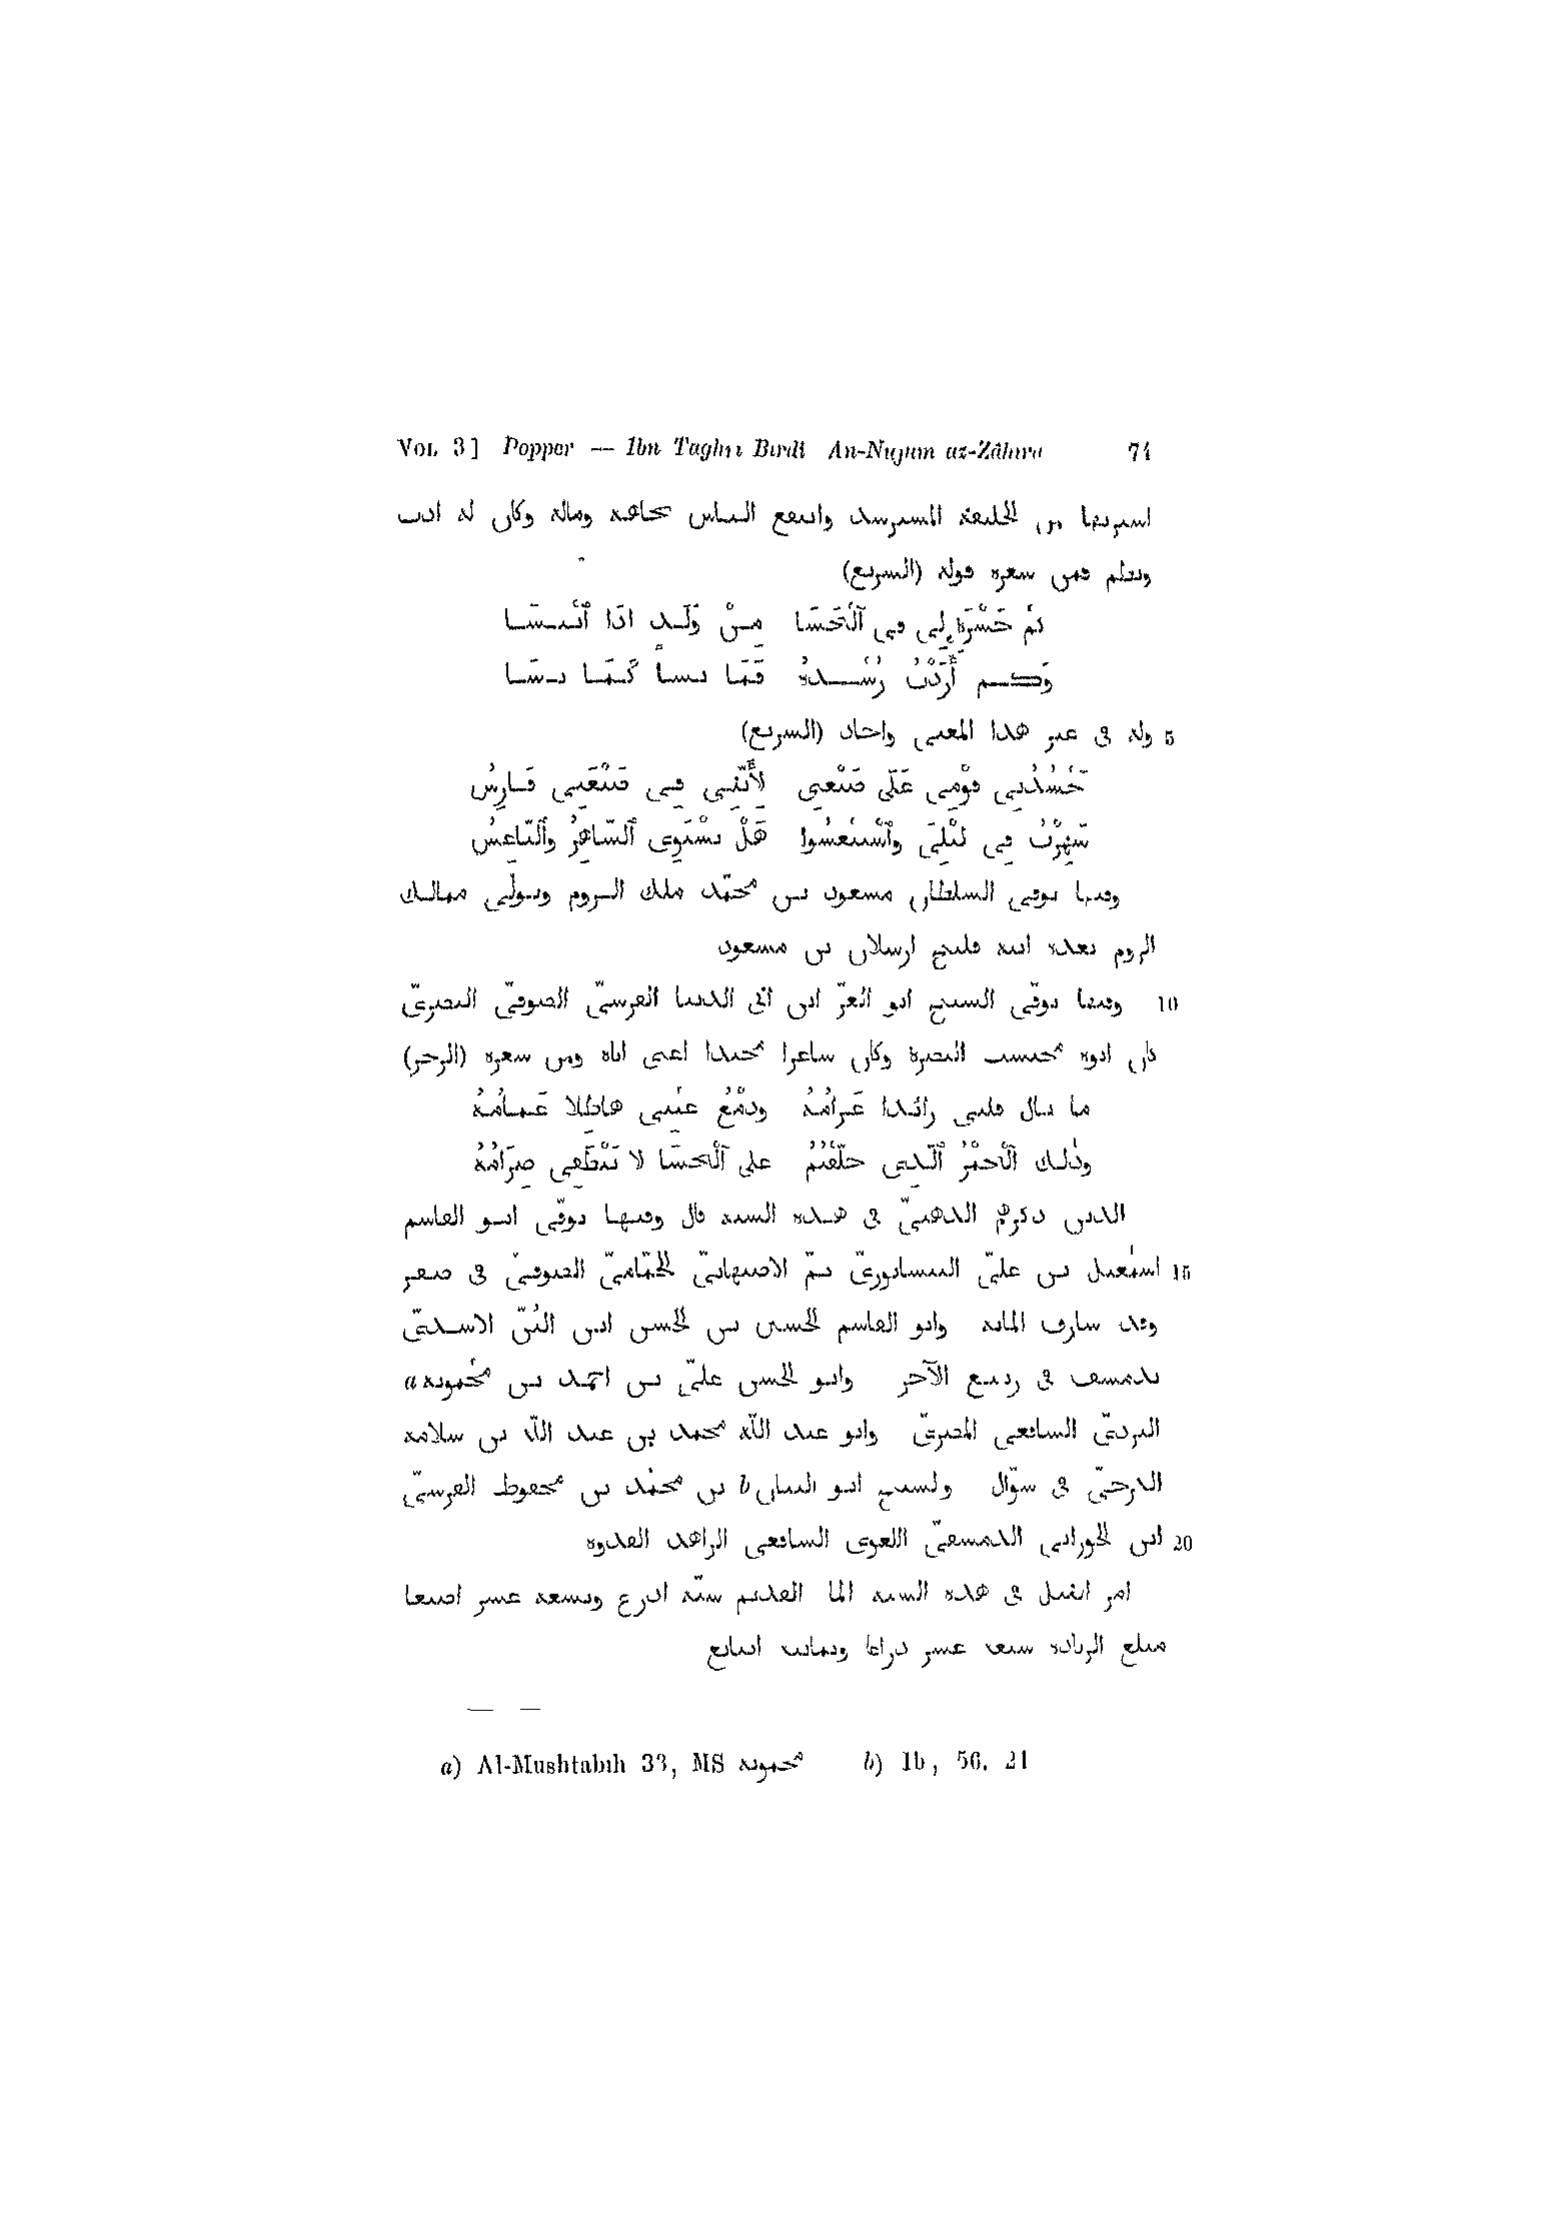 VOL 3] Popper — Ibn Taghri Birdi An-Nujum az-Zâhira 74
اشتريتها من الخليفة المسترشد وانتفع الناس بجاهه وماله وكان له ادب
ونظم فمن شعره قوله (السريع)
كَمْ حَسْرَةٍ لِي فِي ٱلْحَشَا مِنْ وَلَدٍ اذَا ٱنْتَشَا
وَكَم أَرَدْتُ رُشْدهُ فَمَا نشأ كَمَا نشَا
5 وله فى غير هذا المعنى واجاد (السريع)
يَحْسُدُنِي قَوْمِي عَلَى صَنْعَتِي لِأَنَّنِي فِي صَنْعَتِي فَارِسُ
سَهِرْتُ فِي لَيْلِي وَٱسْتَنْعَسُوا هَلْ يَسْتَوِي ٱلسَّاهِرُ وٱلنَّاعِسُ
وفيها توفى السلطان مسعود بن محمّد ملك الروم وتولّى ممالك
الروم بعده ابنه قليج ارسلان بن مسعود
10 وفيها توفّى الشيخ ابو العزّ ابن ابى الدنيا القرشىّ الصوفىّ البصرىّ
كان ابوه محتسب البصرة وكان شاعرا مجيدا اعنى اباه ومن شعره (الرجز)
ما بال قلبى زائدا غَرامُهُ ودَمْعُ عَيْنِى هاطِلا غَمامُهُ
وذٰلك ٱلْجَمْرُ ٱلَّذِى خَلَّفْتُمُ على ٱلْحَشَا لا يَنْطَفِى ضِرَامُهُ
الذين ذكرهم الذهبىّ فى هذه السنة قال وفيها توفّى ابو القاسم
15 اسمٰعيل بن علىّ النيسابورىّ ثمّ الاصبهانىّ الحمّامىّ الصوفىّ فى صفر
وقد شارف المائة وابو القاسم الحسين بن الحسن ابن البُنّ الاسدىّ
بدمشق فى ربيع الآخر وابو الحسن علىّ بن احمد بن مَحْمُويه a
اليزدىّ الشافعى المصرىّ وابو عبد اللّه محمد بن عبد اللّه بن سلامة
الكرخىّ فى شوّال ولشيخ ابو البيان b بن محمّد بن محفوظ القرشىّ
20 ابن الحورانى الدمشقىّ اللغوى الشافعى الزاهد القدوة
امر النيل فى هذه السنة الما القديم ستّة اذرع وتسعة عشر اصبعا
مبلغ الزيادة سبعة عشر ذراعا وثمانية اصابع
a) Al-Mushtabih 33, MS محمويه b) Ib, 56. 21